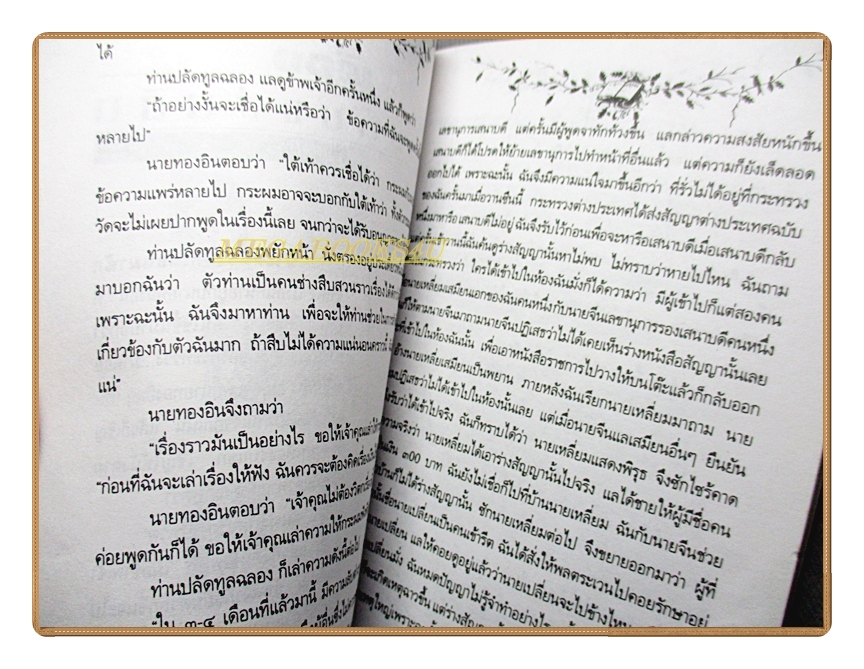 ได้
ท่านปลัดทูลฉลอง แลดูข้าพเจ้าอีกครั้งหนึ่ง แล้วก็พูดว่า
"ถ้าอย่างงั้นจะเชื่อได้แน่หรือว่า ข้อความที่ฉันจะพูด
หลายไป"
นายทองอินตอบว่า "ใต้เท้าควรเชื่อได้ว่า
ข้อความแพร่หลายไป กระผมอาจจะบอกกับใต้เท้าว่า
วัดจะไม่เผยปากพูดในเรื่องนี้เลย จนกว่าจะได้รับ
ท่านปลัดทูลฉลองพยักหน้า นั่งตรองอยู่
MEGABOOKS4U
มาบอกฉันว่า ตัวท่านเป็นคนช่างสืบสวนราวเรื่องได้
เพราะฉะนั้น ฉันจึงมาหาท่าน เพื่อจะให้ท่านช่วยในการ
เกี่ยวข้องกับตัวฉันมาก ถ้าสืบไม่ได้ความแน่นอนคราวนี้
แน่"
นายทองอินจึงถามว่า
"เรื่องราวมันเป็นอย่างไร ขอให้เจ้าคุณเล่า
"ก่อนที่ฉันจะเล่าเรื่องให้ฟัง ฉันควรจะต้องคิดเรื่อง
นายทองอินตอบว่า "เจ้าคุณไม่ต้องวิตก
ค่อยพูดกันก็ได้ ขอให้เจ้าคุณเล่าความให้กระผม
ท่านปลัดทูลฉลอง ก็เล่าความดังนี้ต่อไป
"ใน ๓-๔ เดือนที่แล้วมานี้ มีความลับ
เลขานุการเสนาบดี แต่ครั้นมีผู้พูดจาทักท้วงขึ้น แลกล่าวความสงสัยหนักขึ้น
เสนาบดีก็ได้โปรดให้ย้ายเลขานุการไปทำหน้าที่อื่นแล้ว แต่ความก็ยังเล็ดลอด
ออกไปได้ เพราะฉะนั้น ฉันจึงมีความแน่ใจมาขึ้นอีกว่า ที่รั่วไม่ได้อยู่ที่กระทรวง
ของฉัน ครั้นมาเมื่อวานซืนนี้ กระทรวงต่างประเทศได้ส่งสัญญาต่างประเทศฉบับ
หนึ่งมาหารือ เสนาบดีไม่อยู่ ฉันจึงรับไว้ก่อนเพื่อจะหารือเสนาบดีเมื่อเสนาบดีกลับ
ครั้นเวลานี้ฉันค้นดูร่างสัญญานั้นหาไม่พบ ไม่ทราบว่าหายไปไหน ฉันถาม
ว่า ใครได้เข้าไปในห้องฉันมั่งก็ได้ความว่า มีผู้เข้าไปก็แต่สองคน
นายเหลี่ยมเสมียนเอกของฉันคนหนึ่งกับนายจีนเลขานุการรองเสนาบดีคนหนึ่ง
ให้ถามนายจีนมาถามนายจีนปฏิเสธว่าไม่ได้เคยเห็นร่างหนังสือสัญญานั้นเลย
ที่เข้าไปในห้องฉันนั้น เพื่อเอาหนังสือราชการไปวางให้บนโต๊ะแล้วก็กลับออก
อ้างนายเหลี่ยมเสมียนเป็นพยาน ภายหลังฉันเรียกนายเหลี่ยมมาถาม นาย
ปฏิเสธว่าไม่ได้เข้าไปในห้องนั้นเลย แต่เมื่อนายจีนแลเสมียนอื่นๆ ยืนยัน
รับว่าได้เข้าไปจริง ฉันก็ทราบได้ว่า นายเหลี่ยมแสดงพิรุธ จึงซักไซร้คาด
ความจริงว่า นายเหลี่ยมได้เอาร่างสัญญานั้นไปจริง แลได้ขายให้ผู้มีชื่อคน
เงิน ๓๐๐ บาท ฉันยังไม่เชื่อก็ไปที่บ้านนายเหลี่ยม ฉันกับนายจีนช่วย
บ้านก็ไม่ได้ร่างสัญญานั้น ซักนายเหลี่ยมต่อไป จึงขยายออกมาว่า ผู้ที่
ชื่อนายเปลี่ยนเป็นคนเข้ารีต ฉันได้สั่งให้พลตระเวนไปคอยรักษาอยู่
นายเปลี่ยน แลให้คอยดูอยู่แล้วว่านายเปลี่ยนจะไปข้างไหน
เปลี่ยนมั่ง ฉันหมดปัญญาไม่รู้จะทำอย่างไร
จะเกิดเหตุฉาวขึ้น แต่ร่างสัญญา